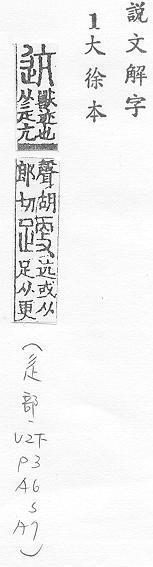 説文解字
1大徐本
迒 獸迹也
从辵亢
聲胡
郎切
𨁈 迒或从
足从更
(辵部、V2下
P3
A6
S
A7)